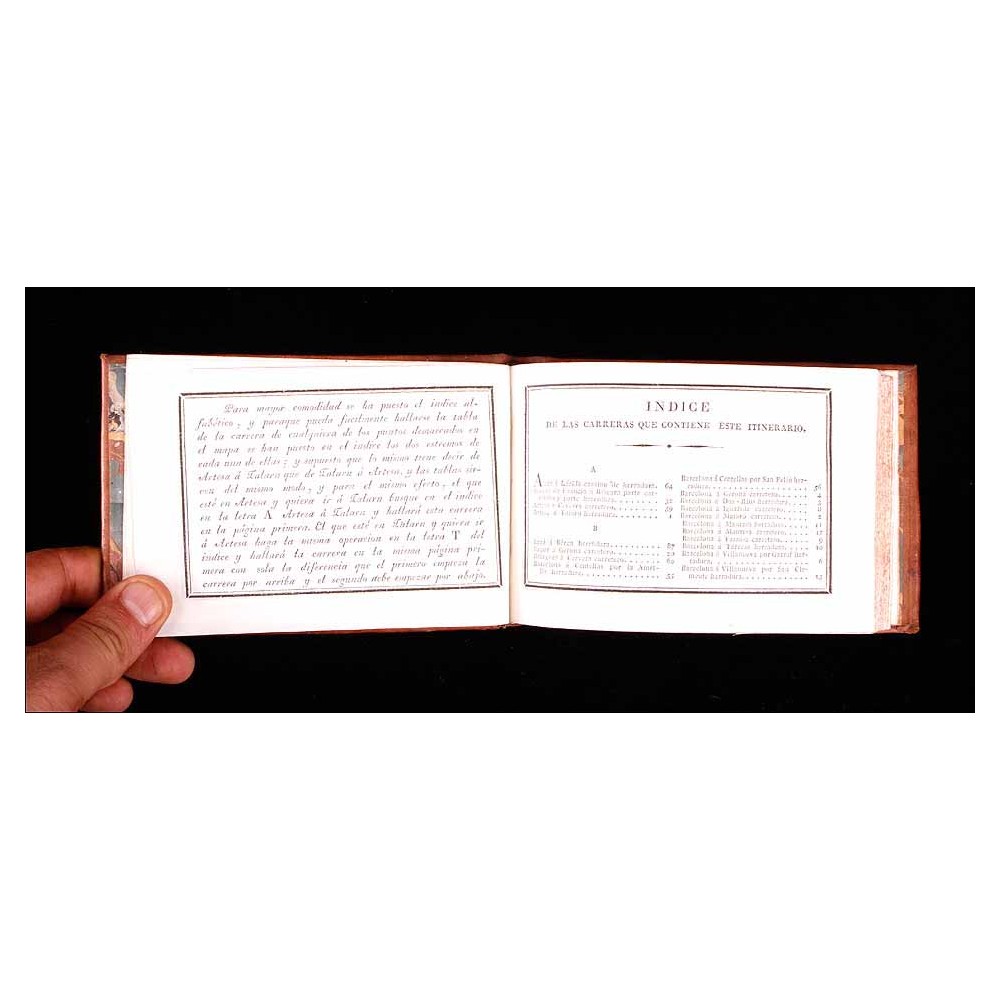 Para mayor comodidad se ha puesto el indice al-
fabético, y paraque pueda facilmente hallarse la tabla
de la carrera de cualquiera de los puntos demarcados en
el mapa se han puesto en el indice los dos estremos de
cada una de ellas; y supuesto que lo mismo tiene decir de
Artesa á Talarn que de Talarn á Artesa, y las tablas sir-
ven del mismo modo, y para el mismo efecto, el que
esté en Artesa y quiera ir á Talarn busque en el indice
en la letra A Artesa á Talarn y hallará esta carrera
en la página primera. El que esté en Talarn y quiera ir
á Artesa haga la misma operacion en la letra T del
indice y hallará la carrera en la misma página pri-
mera con sola la diferencia que el primero empieza la
carrera por arriba y el segundo debe empezar por abajo.
INDICE
DE LAS CARRERAS QUE CONTIENE ESTE ITINERARIO.
A
á Lérida camino de herradura. 64
y parte herradura. 52
á Cervera carretero. 59
á herradura. 1
B
á herradura. 57
á Gerona carretero.
á Cervera carretero. 60
Barcelona á Centellas por la Amet-
lla herradura. 55
Barcelona á Centellas por San Feliu her-
radura. 56
Barcelona á Gerona carretero. 4
Barcelona á Dos-Rius herradura. 3
Barcelona á Igualada carretero. 8
Barcelona á Mataró carretero. 2
Barcelona á Manresa herradura. 11
Barcelona á Manresa carretero. 7
Barcelona á carretero. 9
Barcelona á herradura. 10
Barcelona á Villanueva por Garraf her-
radura. 6
Barcelona á Villanueva por San Cle-
mente herradura. 12